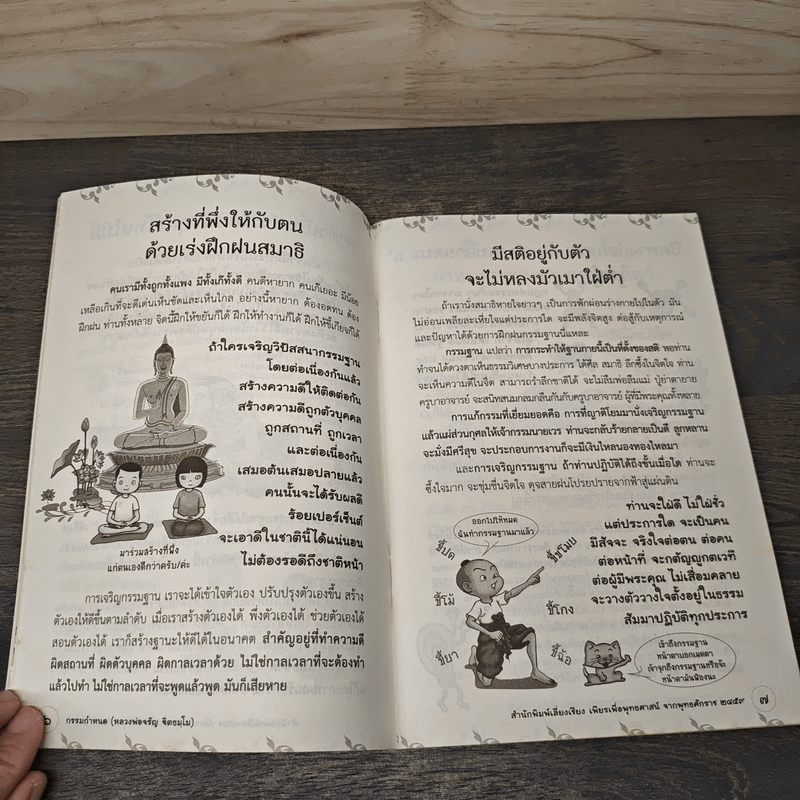 สร้างที่พึ่งให้กับตน
ด้วยเร่งฝึกฝนสมาธิ
คนเรามีทั้งถูกทั้งแพง มีทั้งเก๊ทั้งดี คนดีหายาก คนเก๊เยอะ มีน้อย
เหลือเกินที่จะดีเด่นเห็นชัดและเห็นไกล อย่างนี้หายาก ต้องอดทน ต้อง
ฝึกฝน ท่านทั้งหลาย จิตนี้ฝึกให้ขยันก็ได้ ฝึกให้ทำงานก็ได้ ฝึกให้ขี้เกียจก็ได้
ถ้าใครเจริญวิปัสสนากรรมฐาน
โดยต่อเนื่องกันแล้ว
สร้างความดีให้ติดต่อกัน
สร้างความดีถูกตัวบุคคล
ถูกสถานที่ ถูกเวลา
และต่อเนื่องกัน
เสมอต้นเสมอปลายแล้ว
คนนั้นจะได้รับผลดี
ร้อยเปอร์เซ็นต์
จะเอาดีในชาตินี้ได้แน่นอน
ไม่ต้องรอดีถึงชาติหน้า
มาร่วมสร้างที่พึ่ง
แก่ตนเองดีกว่าครับ/ค่ะ
การเจริญกรรมฐาน เราจะได้เข้าใจตัวเอง ปรับปรุงตัวเองขึ้น สร้าง
ตัวเองให้ดีขึ้นตามลำดับ เมื่อเราสร้างตัวเองได้ พึ่งตัวเองได้ ช่วยตัวเองได้
สอนตัวเองได้ เราก็สร้างฐานะให้ดีได้ในอนาคต สำคัญอยู่ที่ทำความดี
ผิดสถานที่ ผิดตัวบุคคล ผิดกาลเวลาด้วย ไม่ใช่กาลเวลาที่จะต้องทำ
แล้วไปทำ ไม่ใช่กาลเวลาที่จะพูดแล้วพูด มันก็เสียหาย
๖ กรรมกำหนด (หลวงพ่อจรัญ ฐิตธมฺโม)
มีสติอยู่กับตัว
จะไม่หลงมัวเมาใฝ่ต่ำ
ถ้าเรานั่งสมาธิหายใจยาวๆ เป็นการพักผ่อนร่างกายไปในตัว มัน
ไม่อ่อนเพลียละเหี่ยใจแต่ประการใด จะมีพลังจิตสูง ต่อสู้กับเหตุการณ์
และปัญหาได้ด้วยการฝึกฝนกรรมฐานนี่แหละ
กรรมฐาน แปลว่า การกระทำให้ฐานกายนี้เป็นที่ตั้งของสติ พอท่าน
ทำจนได้ดวงตาเห็นธรรมวิเศษบางประการ ได้ศีล สมาธิ ลึกซึ้งในจิตใจ ท่าน
จะเห็นความดีในจิต สามารถรำลึกชาติได้ จะไม่ลืมพ่อลืมแม่ ปู่ย่าตายาย
ครูบาอาจารย์ จะสนิทสนมกลมกลืนกันกับครูบาอาจารย์ ผู้ที่มีพระคุณทั้งหลาย
การแก้กรรมที่เยี่ยมยอดคือ การที่ญาติโยมมานั่งเจริญกรรมฐาน
แล้วแผ่ส่วนกุศลให้เจ้ากรรมนายเวร ท่านจะกลับร้ายกลายเป็นดี ลูกหลาน
จะมั่งมีศรีสุข จะประกอบการงานก็จะมีเงินไหลนองทองไหลมา
และการเจริญกรรมฐาน ถ้าท่านปฏิบัติได้ถึงขั้นเมื่อใด ท่านจะ
ซึ้งใจมาก จะชุ่มชื่นจิตใจ ดุจสายฝนโปรยปรายจากฟ้าสู่แผ่นดิน
ท่านจะใฝ่ดี ไม่ใฝ่ชั่ว
แต่ประการใด จะเป็นคน
มีสัจจะ จริงใจต่อตน ต่อคน
ต่อหน้าที่ จะกตัญญูกตเวที
ต่อผู้มีพระคุณ ไม่เสื่อมคลาย
จะวางตัววางใจตั้งอยู่ในธรรม
สัมมาปฏิบัติทุกประการ
ออกไปให้หมด
ฉันทำกรรมฐานมาแล้ว
ขี้ปด
ขี้ขโมย
ขี้โม้
ขี้โกง
ขี้ยา
ขี้ฉ้อ
เข้าถึงกรรมฐาน
หน้าตาบอกเมตตา
เจ้าจุกถึงกรรมฐานหรือจ๊ะ
หน้าตามันฟ้องนะ
สำนักพิมพ์เลี่ยงเชียง เพียรเพื่อพุทธศาสน์ จากพุทธศักราช ๒๔๕๙ ๗